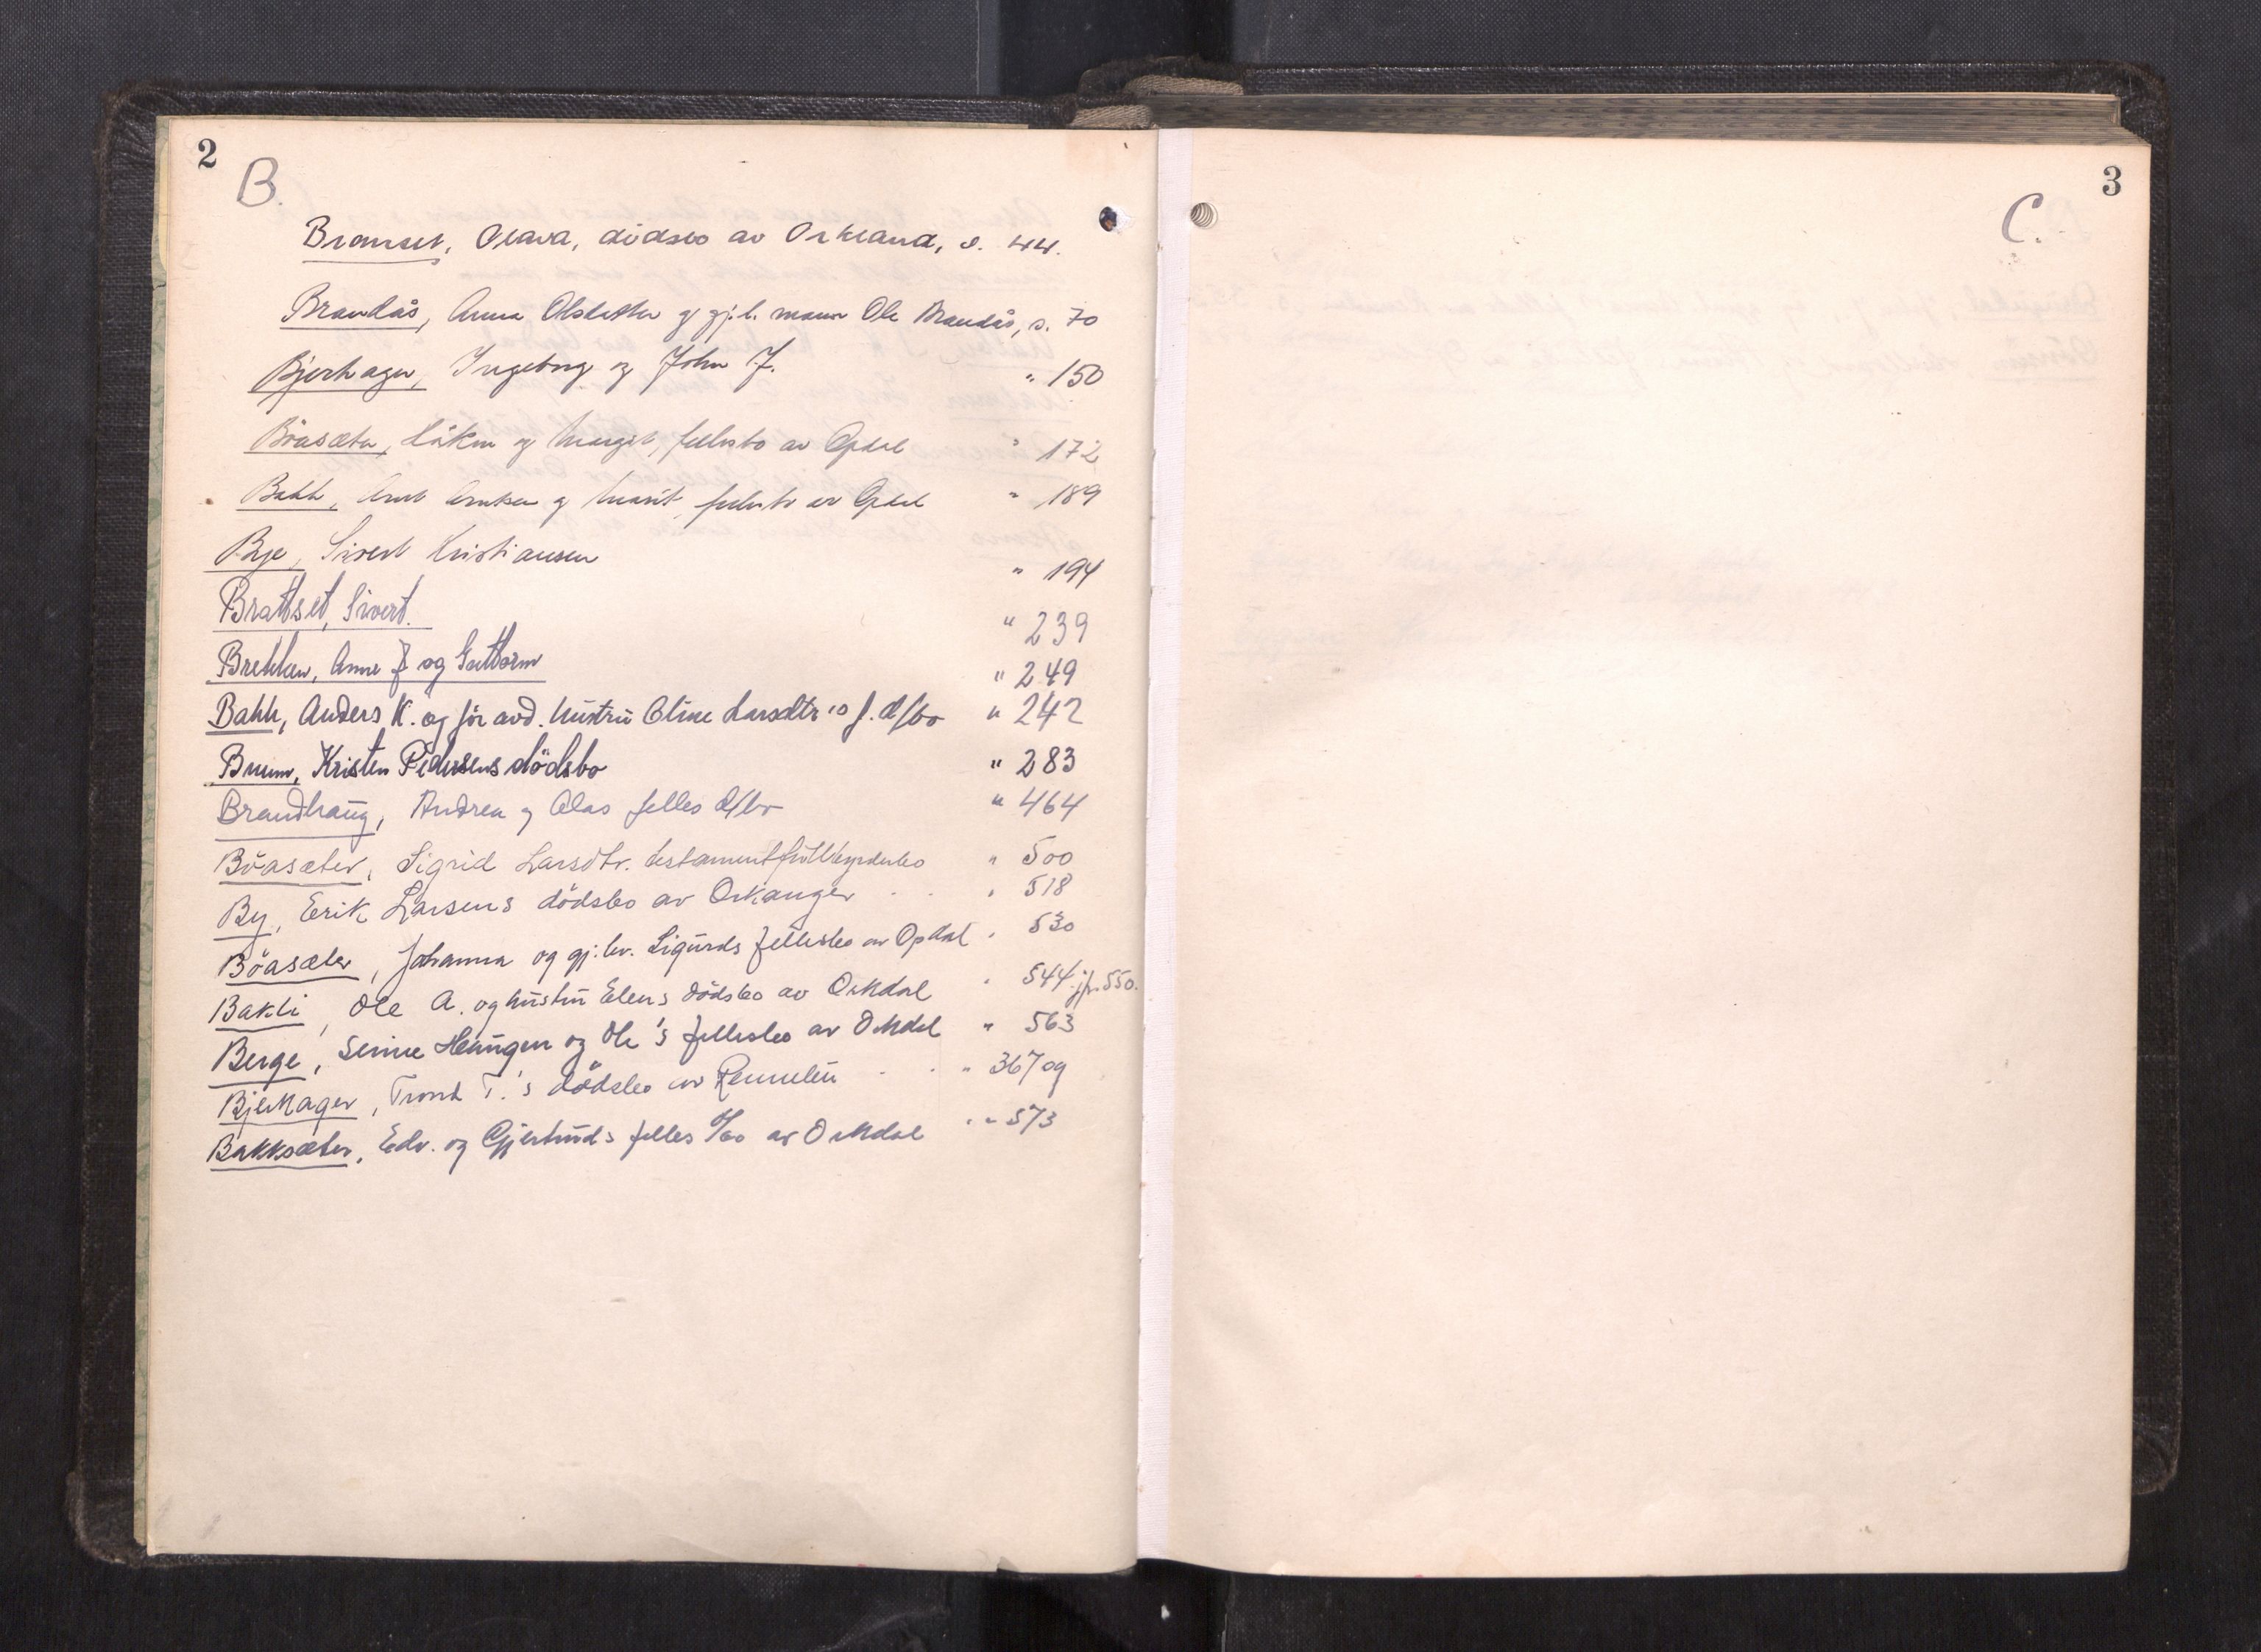 2
B.
Bronset, Olava, dödsbo av Orkland, s. 44.
Brandås, Anna Olsdatter og gj.l. mann Ole Brandås, s. 70
Bjerkager, Ingeborg og John J. " 150
Böasæter, Håkon og Marget, fellesbo av Opdal " 172
Bakk, Arnt Arntsen og Marit, fellesbo av Opdal " 189
Bye, Sivert Kristiansen " 194
Brattset, Sivert. " 239
Brekken, Anne J og Guttorm " 249
Bakk, Anders K. og før avd. hustru Oline Larsdtr's f. d/bo " 242
Bruun, Kristen Pedersens dödsbo " 283
Brandhaug, Andrea og Olas felles d/bo " 464
Böasæter, Sigrid Larsdtr. testamentfullbyrderbo " 500
By, Erik Larsens dödsbo av Orkanger " 518
Böasæter, Johanna og gj.lev. Sigurds fellesbo av Opdal " 530
Bakli, Ole A. og hustru Elens dödsbo av Orkdal " 544 jfr. 550.
Berge, Serine Haugen og Ole's fellesbo av Orkdal " 563
Bjerkager, Trond T.'s dödsbo av Rennebu " 367 og
Bakksæter, Edv. og Gjertruds felles d/bo av Orkdal " 573
3
C.